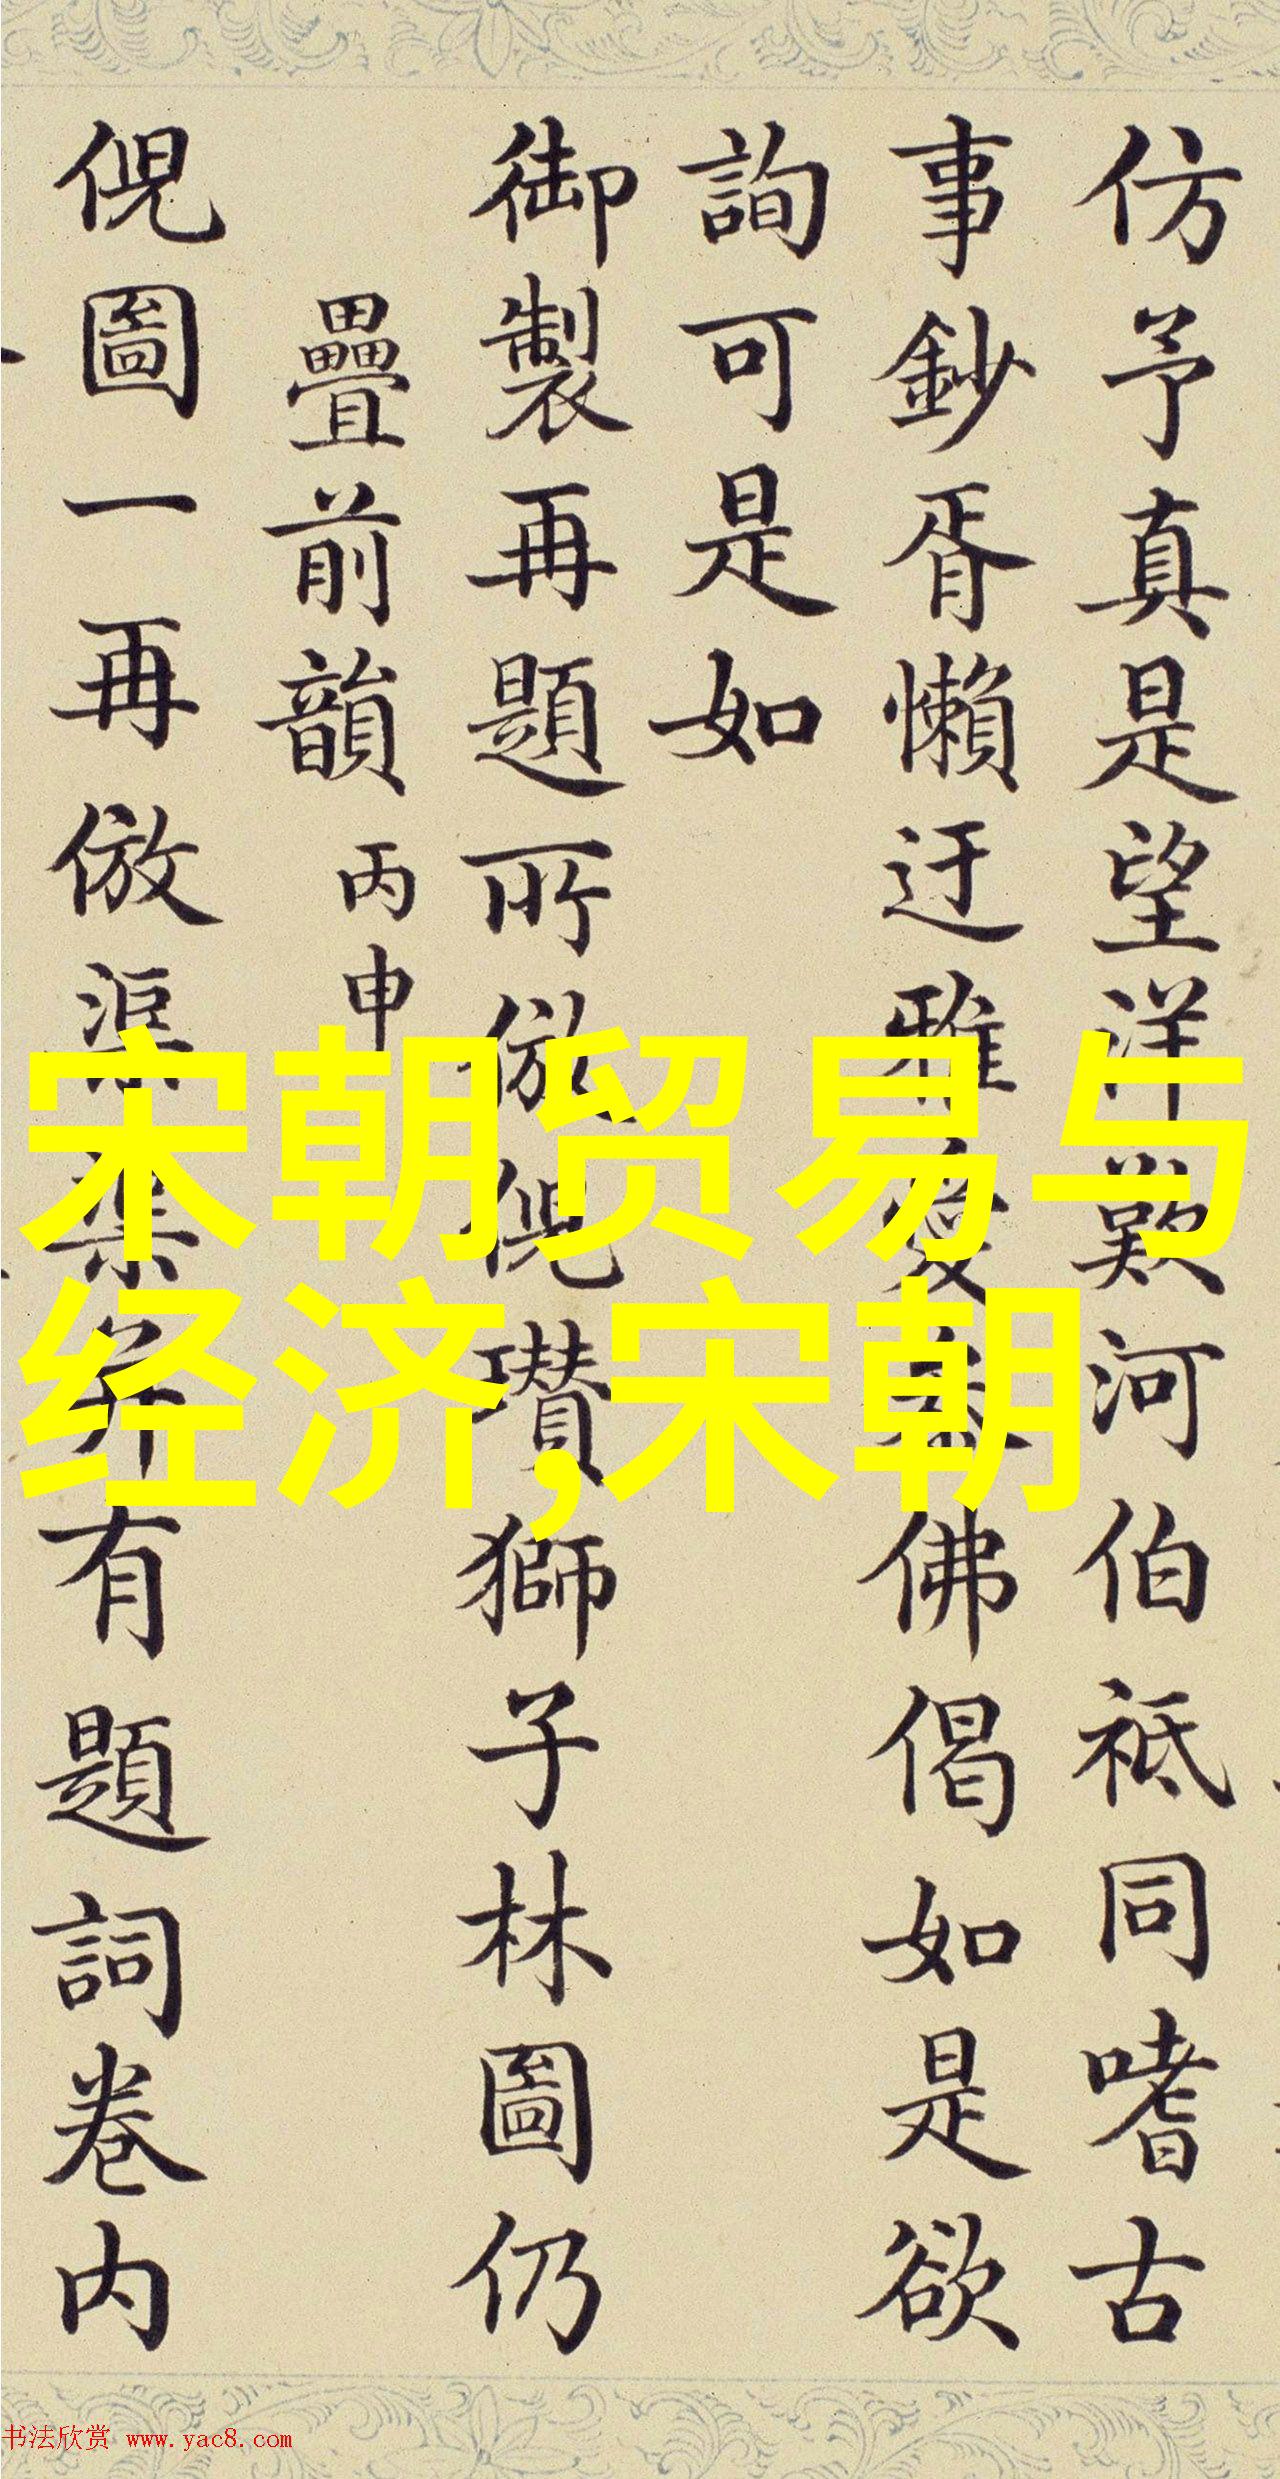 仿予真是望洋歎河伯祇同嗜古
事鈔胥懶迂雅愛佛偈如是欲
詢可是如
御製再題所倣倪瓚獅子林圖仍
疊前韻 丙申
倪圖一再倣渠弆有題詞卷内
宋朝贸易与
经济,宋朝
书法欣赏 www.yac8.com